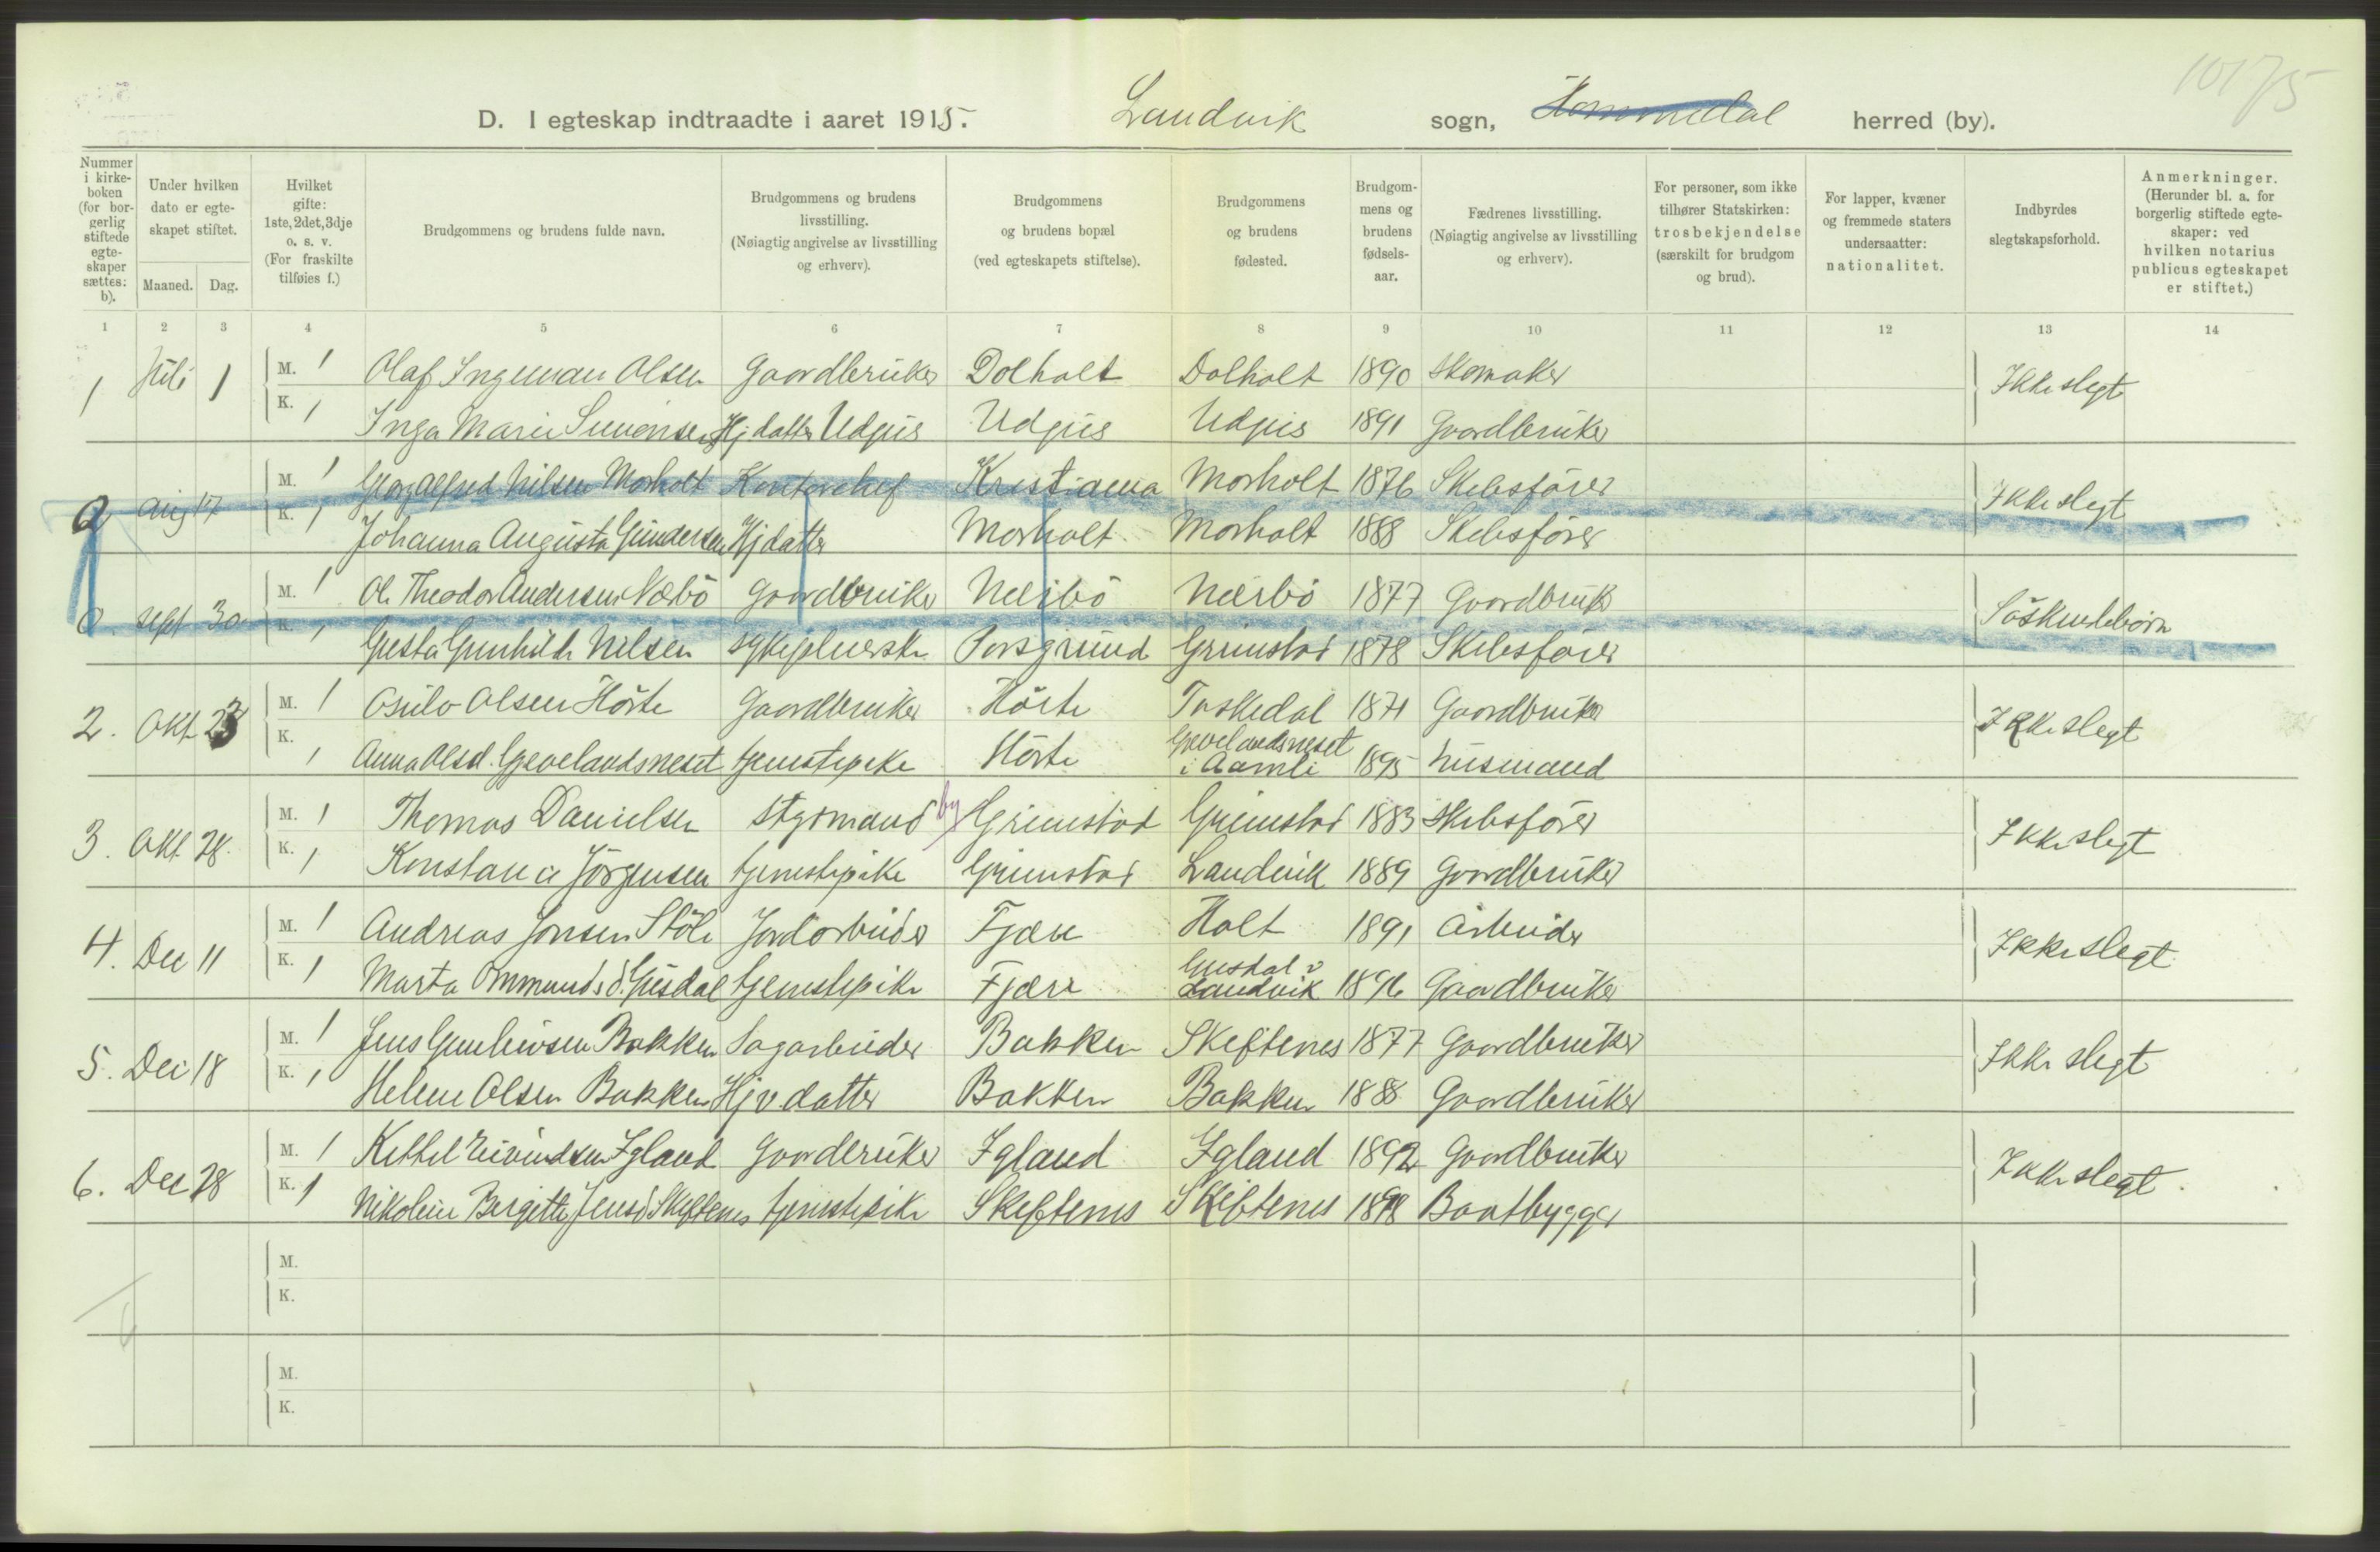 10175
D. I egteskap indtraadte i aaret 1915. Landvik sogn, Hommedal herred (by).
Nummer i kirkeboken (for borgerlig stiftede egteskaper sættes: b).
Under hvilken dato er egteskapet stiftet.
Maaned. Dag.
Hvilket gifte: 1ste, 2det, 3dje o. s. v. (For fraskilte tilføies f.)
Brudgommens og brudens fulde navn.
Brudgommens og brudens livsstilling. (Nøiagtig angivelse av livsstilling og erhverv).
Brudgommens og brudens bopæl (ved egteskapets stiftelse).
Brudgommens og brudens fødested.
Brudgommens og brudens fødselsaar.
Fædrenes livsstilling. (Nøiagtig angivelse av livsstilling og erhverv).
For personer, som ikke tilhører Statskirken: trosbekjendelse (særskilt for brudgom og brud).
For lapper, kvæner og fremmede staters undersaatter: nationalitet.
Indbyrdes slegtskapsforhold.
Anmerkninger. (Herunder bl. a. for borgerlig stiftede egteskaper: ved hvilken notarius publicus egteskapet er stiftet.)
1 2 3 4 5 6 7 8 9 10 11 12 13 14
1 Juli 1 M. 1 Olaf Ingeman Olsen Gaardbruker Dolholt Dolholt 1890 Skomaker Ikke slegt
K. 1 Inga Marie Simonsen Hj datter Udgus Udgus Udgus 1891 Gaardbruker
Aug 17 M. 1 Georg Alfred Nilsen Morholt Kontorchef Kristiania Morholt 1876 Skibsfører Ikke slegt
K. 1 Johanna Augusta Gundersen Hj datter Morholt Morholt 1888 Skibsfører
Sept 30 M. 1 Ole Theodor Andersen Nærbö Gaardbruker Nærbö Nærbö 1877 Gaardbruk Söskendebörn
K. 1 Gusta Gunhilde Nilsen sykepleierske Porsgrund Grimstad 1878 Skibsfører
2. Okt 23 M. 1 Olsen Hörte Gaardbruker Hörte Taskedal 1871 Gaardbruker Ikke slegt
K. 1 Anna Olsd. Gjevelandsneset tjenestepike Hörte Gjevelandsneset i Aamli 1895 husmand
3. Okt 28. M. 1 Thomas Danielsen styrmand by Grimstad Grimstad 1883 Skibsfører Ikke slegt
K. 1 Konstance Jörgensen tjenestepike Grimstad Landvik 1889 Gaardbruker
4. Dec 11 M. 1 Andreas Jonsen Stöle Jordarbeider Fjære Holt 1891 Arbeider Ikke slegt
K. 1 Marta Ommunds d. Gusdal tjenestepike Fjære Gusdal i Landvik 1896 Gaardbruker
5. Dec 18 M. 1 Jens Gunleivsen Bakken Sagarbeider Bakken Skeftenes 1877 Gaardbruker Ikke slegt
K. 1 Helene Olsen Bakken Hjv. datter Bakken Bakken 1888 Gaardbruker
6. Dec 28 M. 1 Kettel Eivindsen Igland Gaardbruker Igland Igland 1892 Gaardbruker Ikke slegt.
K. 1 Nikoline Bergitte Jensd Skeftenes tjenestepike Skeftenes Skeftenes 1898 Baatbygger
M.
K.
6
M.
K.